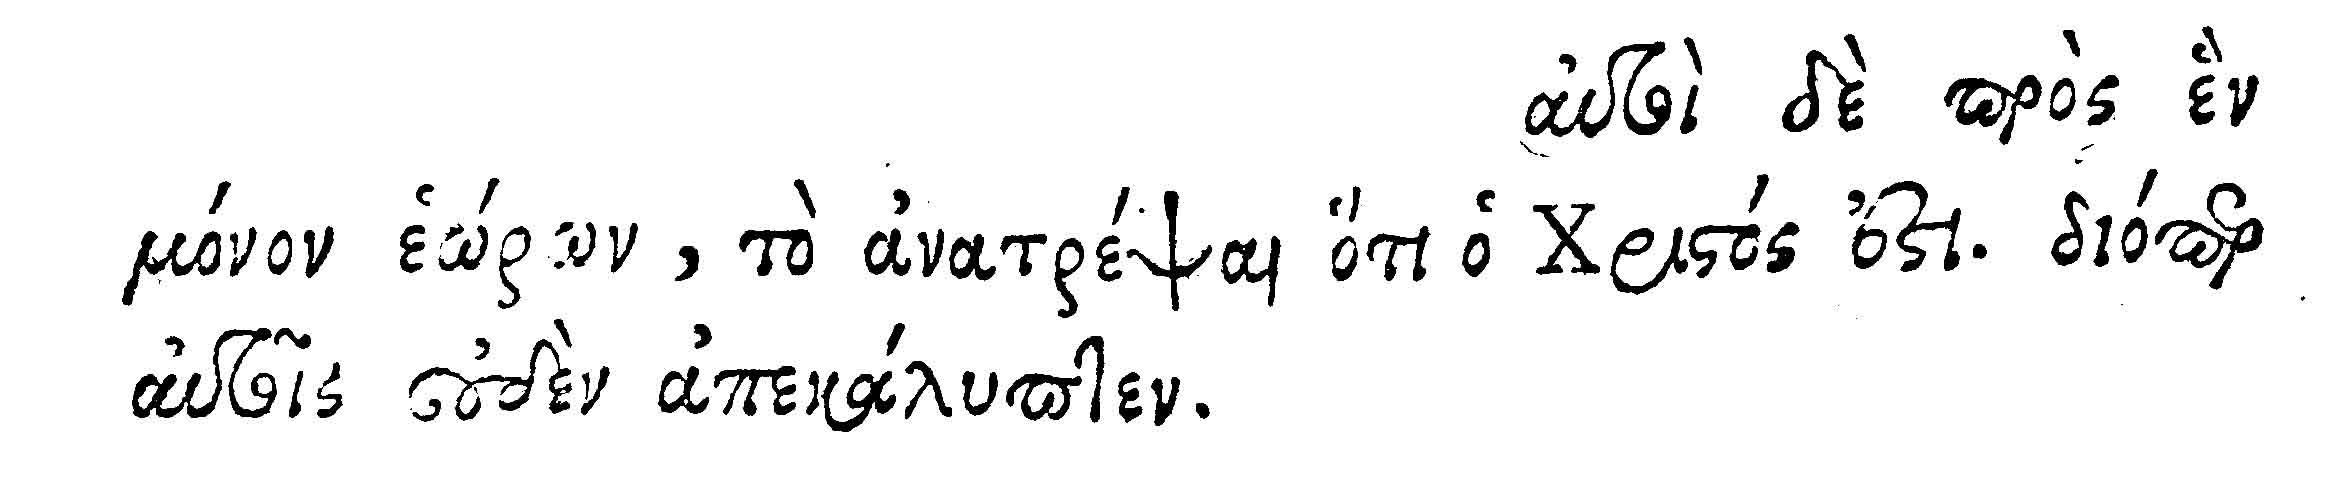 αὐτοὶ δὲ πρὸς ἓν
μόνον ἑώρων, τὸ ἀνατρέψαι ὅτι ὁ Χριστός ἐστι. διόπερ
αὐτοῖς οὐδὲν ἀπεκάλυπτεν.